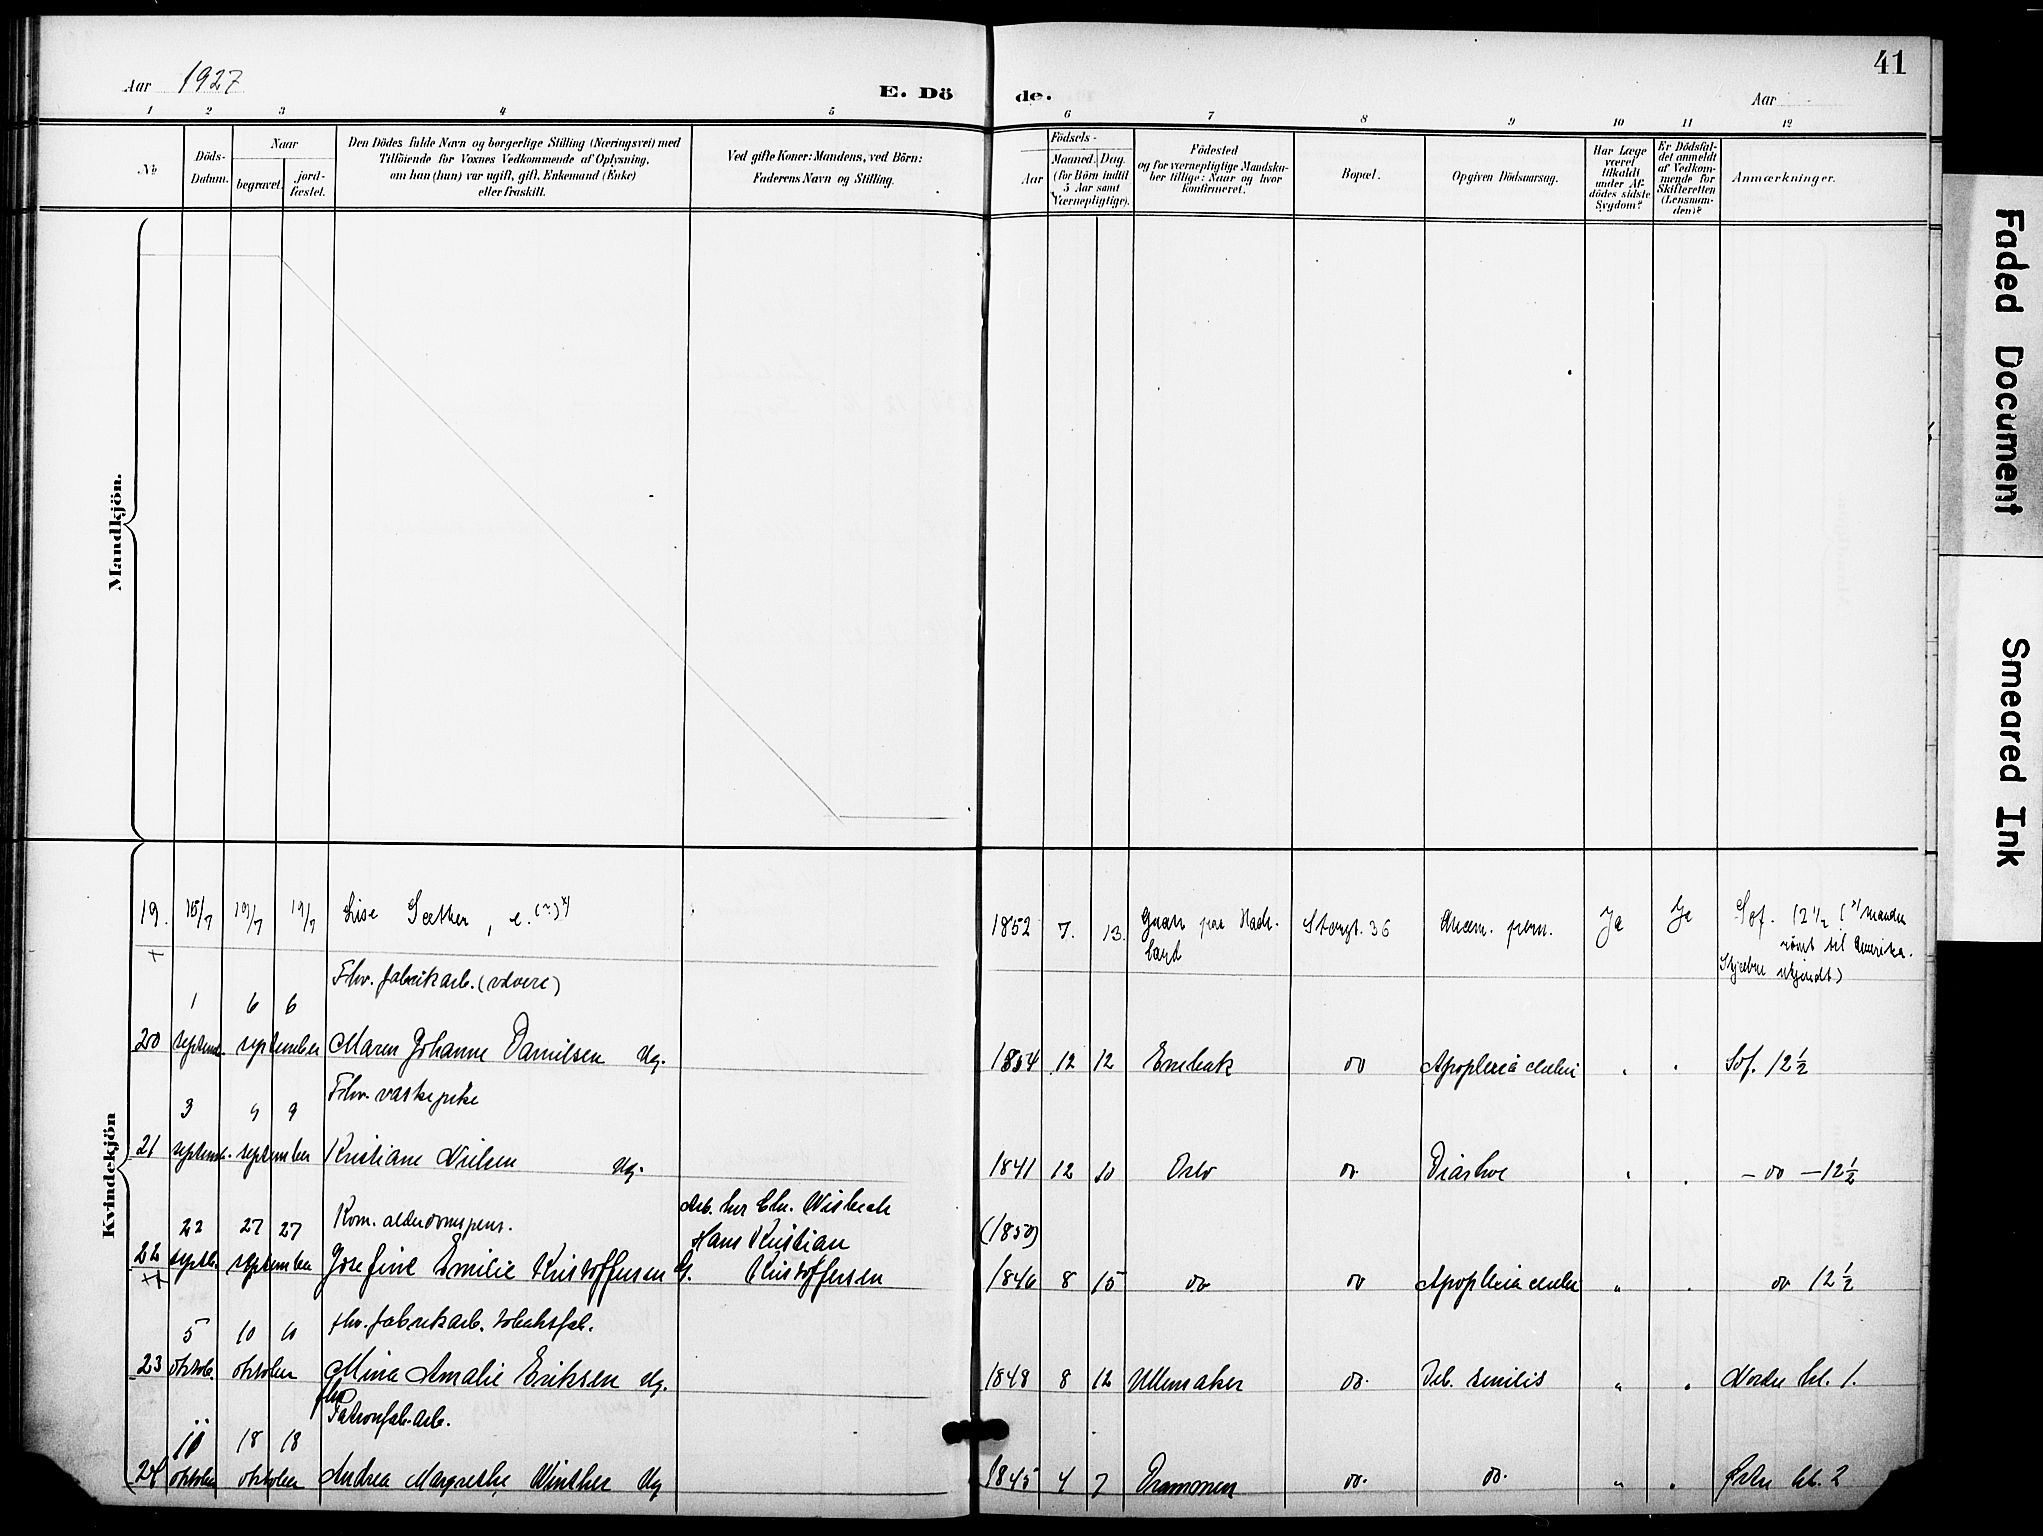 41
Aar 1927
E. Dö de.
Aar
1 2 3 4 5 6 7 8 9 10 11 12
No
Döds-
Datum.
Naar
begravet.
jord-
fæstet.
Den Dödes fulde Navn og borgerlige Stilling (Næringsvei) med
Tilföiende for Voxnes Vedkommende af Oplysning,
om han (hun) var ugift, gift, Enkemand (Enke)
eller fraskilt.
Ved gifte Koner: Mandens, ved Börn:
Faderens Navn og Stilling.
Födsels-
Aar
Maaned.
Dag.
(for Börn indtil
5 Aar samt
Værnepligtige).
Födested
og for værnepligtige Mandska-
ber tillige: Naar og hvor
konfirmeret.
Bopæl.
Opgiven Dödsaarsag.
Har Læge
været
tilkaldt
under Af-
dödes sidste
Sygdom?
Er Dödsfal-
det anmeldt
af Vedkom-
mende for
Skifteretten
(Lensman-
den)?
Anmærkninger.
Mandkjön.
Kvindekjön
19. 15/7 19/7 19/7 Lise Sæther, e. (?) x) 1852 7. 13. Gran Had-
land
Storgt. 36 Anæm. pern. Ja Ja Sof. 12 1/2 (x) Manden
römt til Amerika.
Skjæbne ukjendt)
Fhv. fabrikarb.
1 6 6
20 september Maren Johanne Danielsen Ug. 1854 12 12 Enebak do Apoplexia Sof. 12 1/2
Fhv. vaskepike
3 9 9
21 september Kristiane Nielsen Ug. 1841 12 10 Oslo do - do - 12 1/2
Kom. alderdomspens.
Hans Kristian
22 27 27 (1850)
22 septb. september Josefine Emilie Kristoffersen G. Kristoffersen 1846 8 15 do do Apoplexia do 12 1/2
fhv. fabrikarb. tobaksfab.
5 10 10
23 oktob. oktober Mina Amalie Eriksen Ug. 1848 8 12 Ullensaker do. Deb. senilis Nordre kl. 1.
fhv.
Patronfab. arb.
11 18 18
24 oktober oktober Andrea Margrethe Winther Ug 1845 4 7 Drammen do. do. Østre kl. 2
Faded Document
Smeared Ink